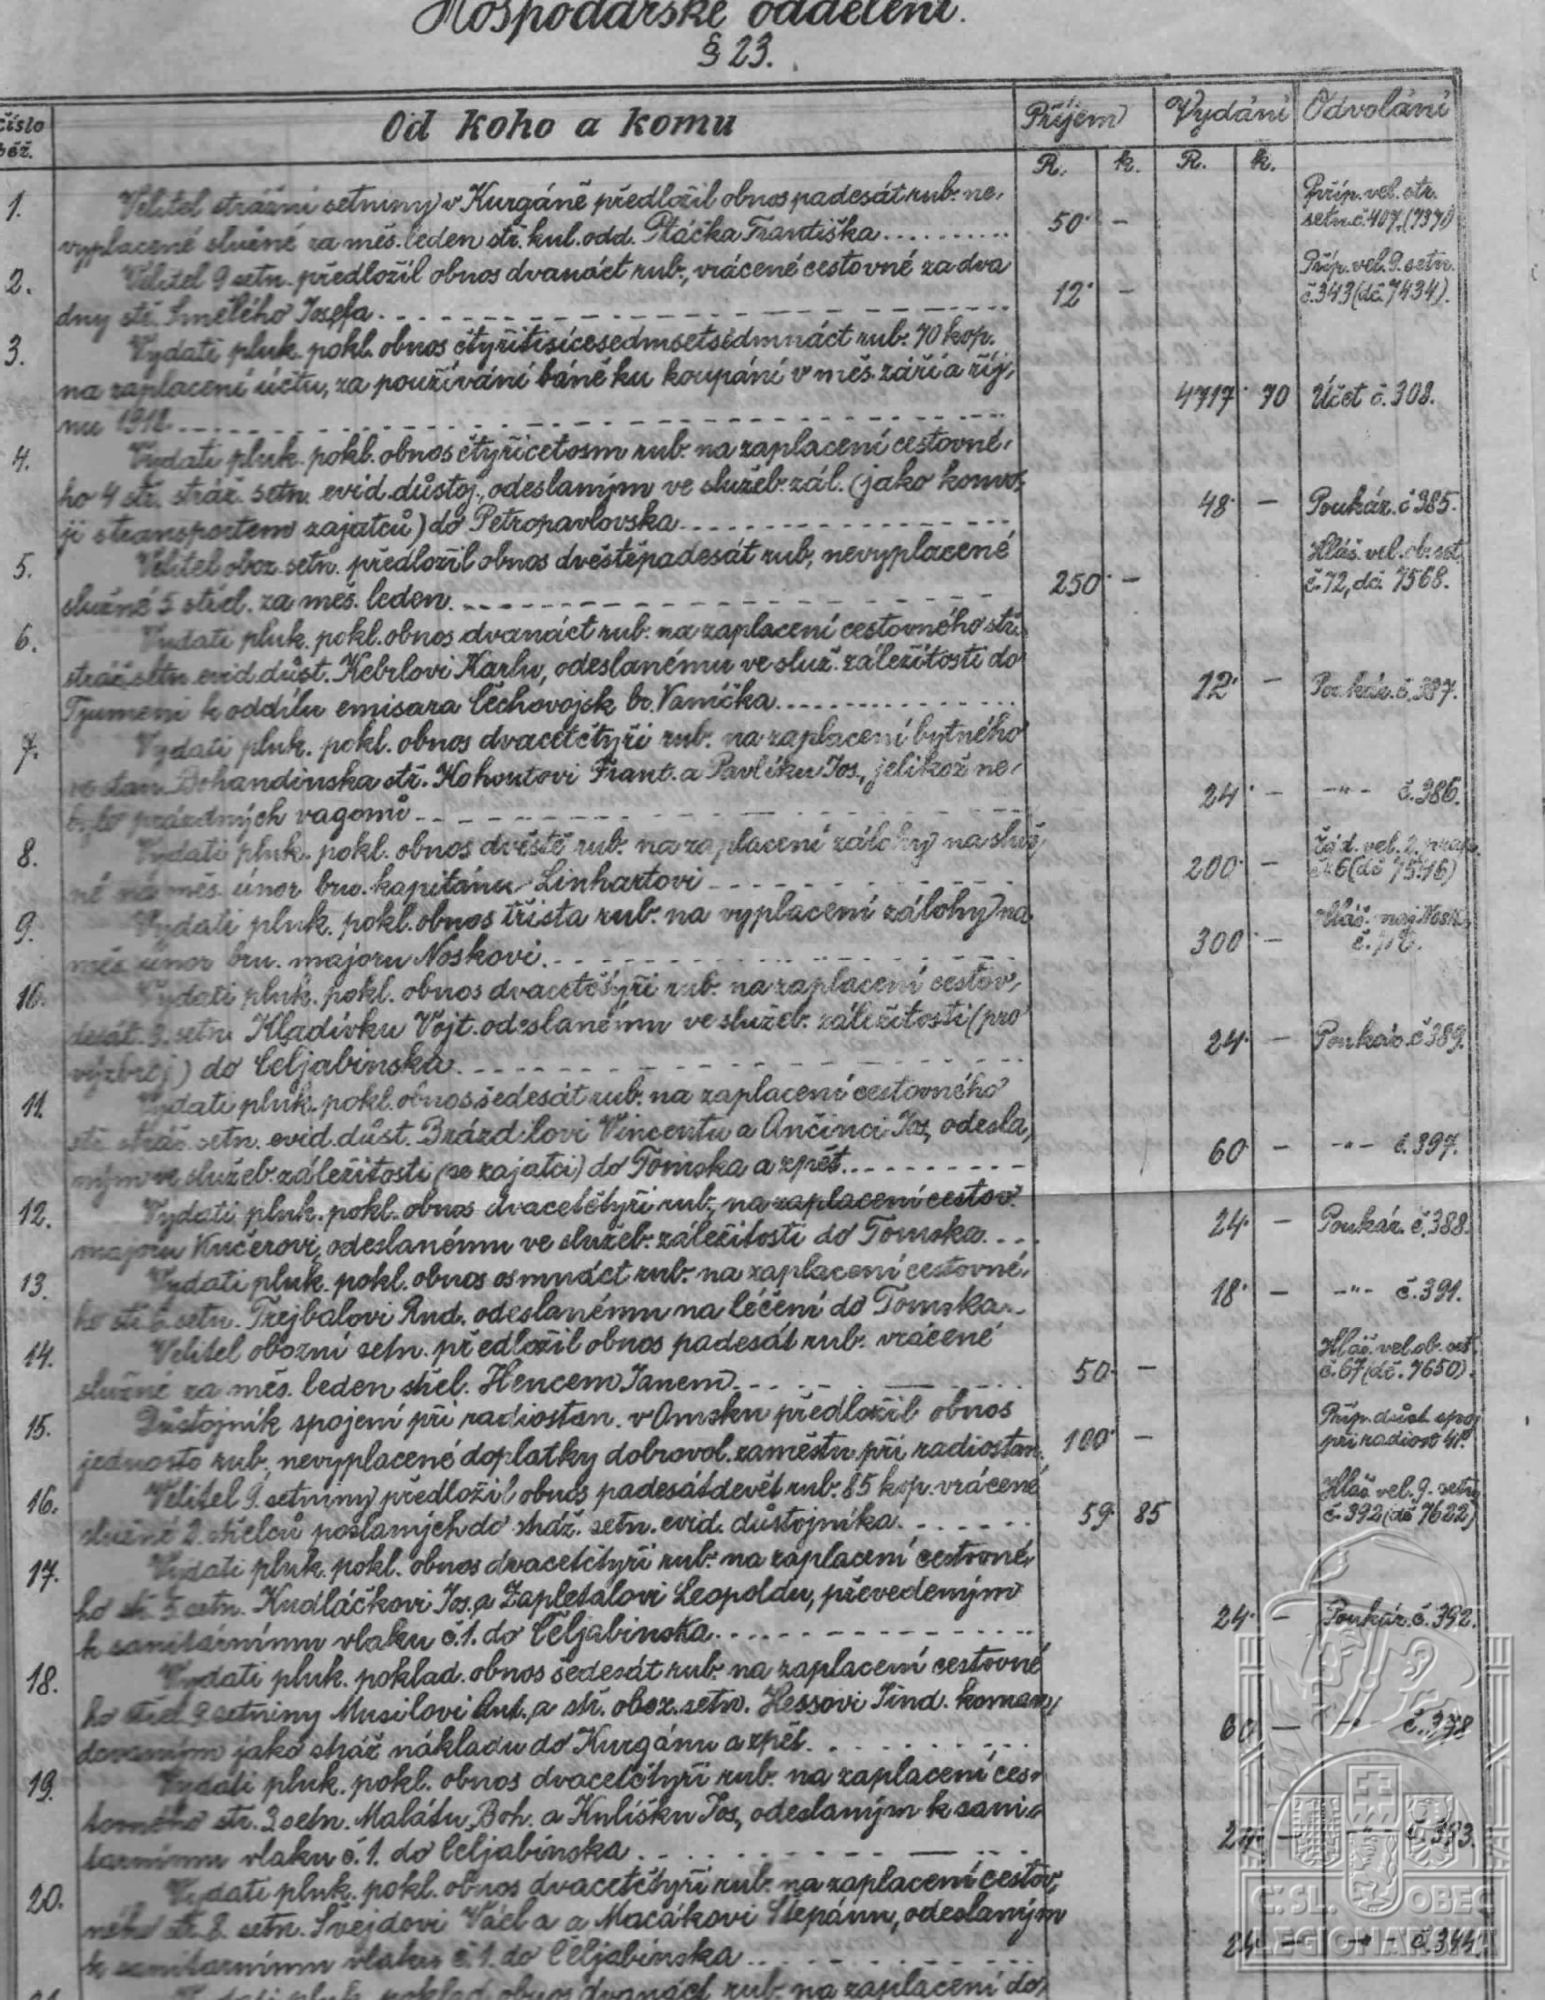 Hospodářské oddělení.
§ 23.
číslo běž. Od koho a komu Příjem Vydání Odvolání
R. k. R. k.
1. Velitel strážní setniny v Kurgáně předložil obnos padesát rub. ne- Příp. vel. str.
vyplacené služné za měs. leden stř. kul. odd. Ptáčka Františka 50 — setn. č. 407.
2. Velitel 9 setn. předložil obnos dvanáct rub., vrácené cestovné za dva Příp. vel. 9. setn.
dny stř. Smělého Josefa 12 — č. 343 (dč. 7434).
3. Vydati pluk. pokl. obnos čtyřitisícesedmsetsedmnáct rub. 70 kop.
na zaplacení účtu, za používání báně ku koupání v měs. září a říj- 4717 70 Účet č. 308.
nu 1918
4. Vydati pluk. pokl. obnos čtyřicetosm rub. na zaplacení cestovné-
ho 4 stř. stráž. setn. evid. důstoj., odeslaným ve služeb. zál. (jako konvo- 48 — Poukáz. č. 385.
ji s transportem zajatců) do Petropavlovska
5. Velitel oboz. setn. předložil obnos dvěstěpadesát rub., nevyplacené Hláš. vel. ob. set.
služné 5 střel. za měs. leden 250 — č. 72, dč. 7568.
6. Vydati pluk. pokl. obnos dvanáct rub. na zaplacení cestovného stř.
stráž. setn. evid. důst. Kebrlovi Karlu, odeslanému ve služ. záležitosti do 12 — Poukáz. č. 387.
Tjumeni k oddílu emisara Čechovojsk br. Vaníčka
7. Vydati pluk. pokl. obnos dvacetčtyři rub. na zaplacení bytného
ve stan. Bohandinska stř. Kohoutovi Frant. a Pavlíku Jos., jelikož ne- 24 — —"— č. 386.
bylo prázdných vagonů
8. Vydati pluk. pokl. obnos dvěstě rub. na zaplacení zálohy na služ- Žád. vel. 2. prap.
né na měs. únor bru. kapitánu Linhartovi 200 —
9. Vydati pluk. pokl. obnos třista rub. na vyplacení zálohy na Hláš. maj. Nosk.
měs. únor bru. majoru Noskovi. 300 —
10. Vydati pluk. pokl. obnos dvacetčtyři rub. na zaplacení cestov.
desát. 3. setn. Kladívku Vojt. odeslanému ve služeb. záležitosti (pro 24 — Poukáz. č. 389.
výzbroj) do Čeljabinska
11. Vydati pluk. pokl. obnos šedesát rub. na zaplacení cestovného
stř. stráž. setn. evid. důst. Brázdilovi Vincentu a Ančinci Jos., odesla- 60 — —"— č. 397.
ným ve služeb. záležitosti (se zajatci) do Tomska a zpět
12. Vydati pluk. pokl. obnos dvacetčtyři rub., na zaplacení cestov.
majoru Kučerovi, odeslanému ve služeb. záležitosti do Tomska 24 — Poukáz. č. 388.
13. Vydati pluk. pokl. obnos osmnáct rub. na zaplacení cestovné-
ho stř. 6. setn. Trejbalovi Rud. odeslanému na léčení do Tomska 18 — —"— č. 391.
14. Velitel obozní setn. předložil obnos padesát rub. vrácené Hláš. vel. ob. set.
služné za měs. leden střel. Hencem Janem 50 — č. 67 (dč. 7650).
15. Důstojník spojení při radiostan. v Omsku předložil obnos Příp. důst. spoj.
jednosto rub., nevyplacené doplatky dobrovol. zaměstn. při radiostan. 100 — při radiost.
16. Velitel 9. setniny předložil obnos padesátdevět rub. 85 kop. vrácené Hláš. vel. 9. setn.
služné 2. střelců poslaných do stráž. setn. evid. důstojníka. 59 85 č. 392 (dč. 7622)
17. Vydati pluk. pokl. obnos dvacetčtyři rub. na zaplacení cestovné-
ho stř. 5. setn. Kudláčkovi Jos. a Zapletalovi Leopoldu, převedeným 24 — Poukáz. č. 392.
k sanitárnímu vlaku č. 1. do Čeljabinska
18. Vydati pluk. poklad. obnos šedesát rub. na zaplacení cestovné
ho střel 9 setniny Musilovi Ant. a stř. oboz. setn. Hessovi Jind. koman- 60 — —"— č. 378
dovaným jako stráž nákladu do Kurgánu a zpět.
19. Vydati pluk. pokl. obnos dvacetčtyři rub. na zaplacení ces-
tovného stř. 3 setn. Malátu Boh. a Kulíšku Jos., odeslaným k sani- 24 — —"— č. 393.
tarnímu vlaku č. 1. do Čeljabinska
20. Vydati pluk. pokl. obnos dvacetčtyři rub. na zaplacení cestov-
ného stř. 8. setn. Švejdovi Václ. a Macákovi Štěpánu, odeslaným 24 — —"—
k sanitarnímu vlaku č. 1. do Čeljabinska
21. Vydati pluk. poklad. obnos dvanáct rub. na zaplacení do-
Č. SL. OBEC
LEGIONÁŘSKÁ